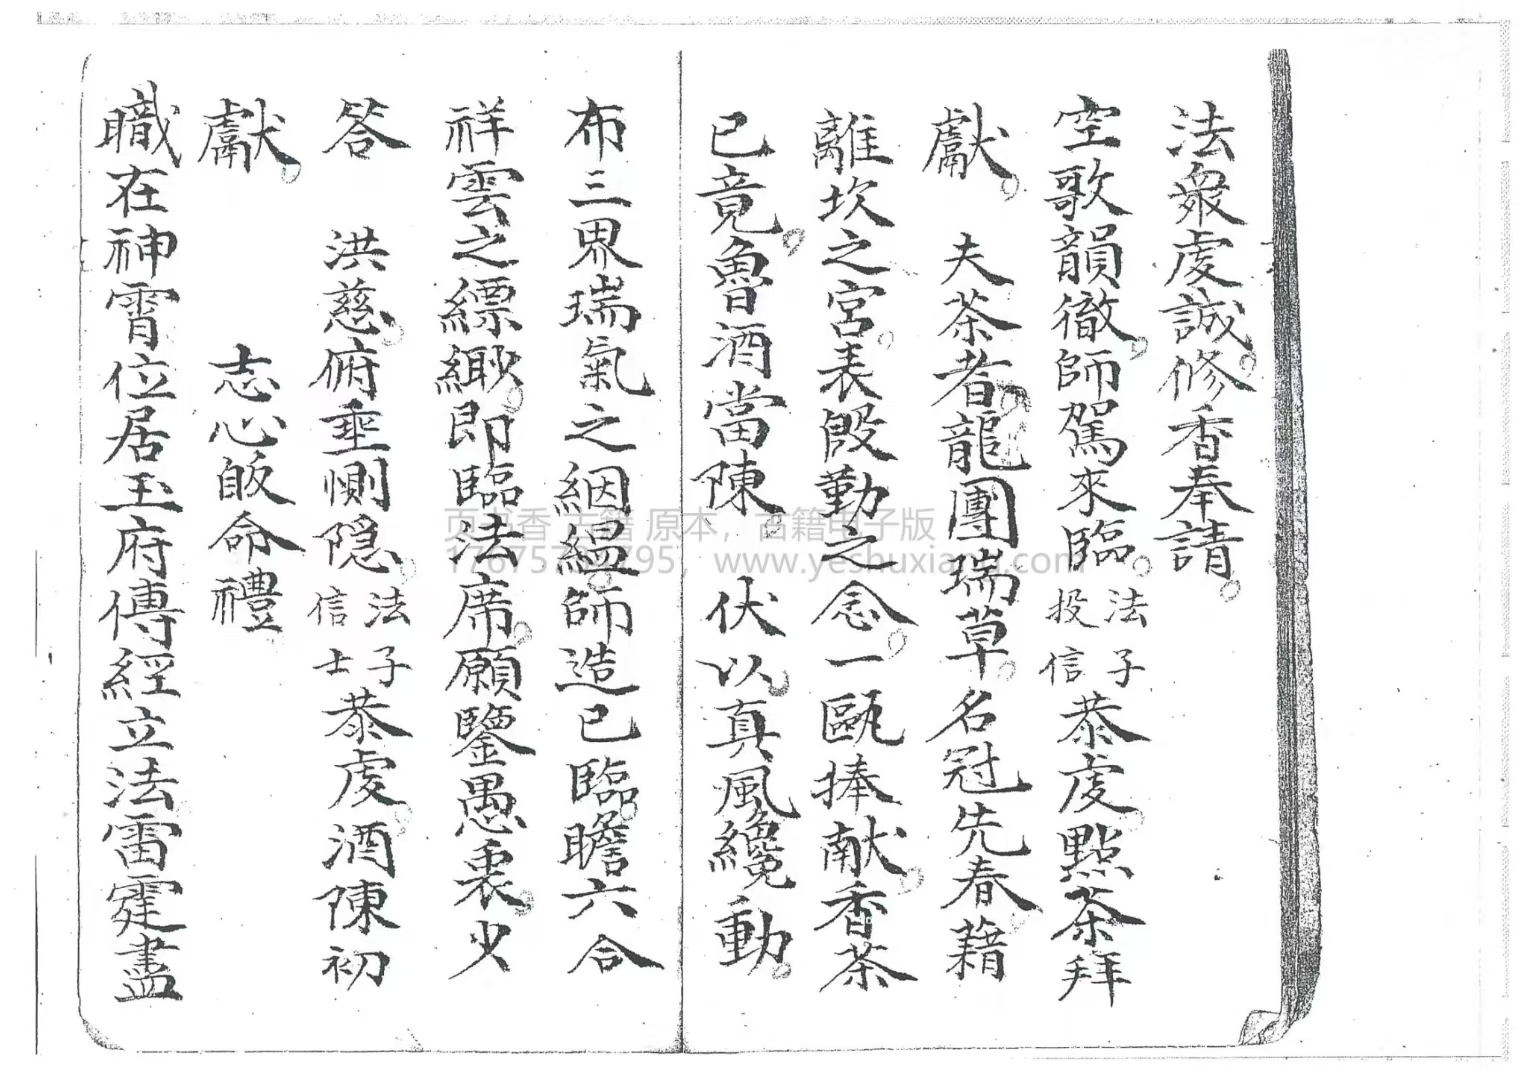 法衆虔誠修香奉請。
空歌韻徹。師駕來臨。法子投信恭虔點茶拜
獻。　夫茶者龍團瑞草。名冠先春。藉
離坎之宮。表殷勤之念。一甌捧献。香茶
已竟。魯酒當陳。　伏以真風纔動。
布三界瑞氣之絪縕。師造已臨。瞻六合
祥雲之縹緲。即臨法席。願鑒愚衷。少
答　洪慈。俯垂惻隐。法子信士恭虔。酒陳初
獻。　志心皈命禮
職在神霄位居玉府傅經立法雷霆盡
页书香 古籍 原本，古籍电子版
www.yeshuxiang.com